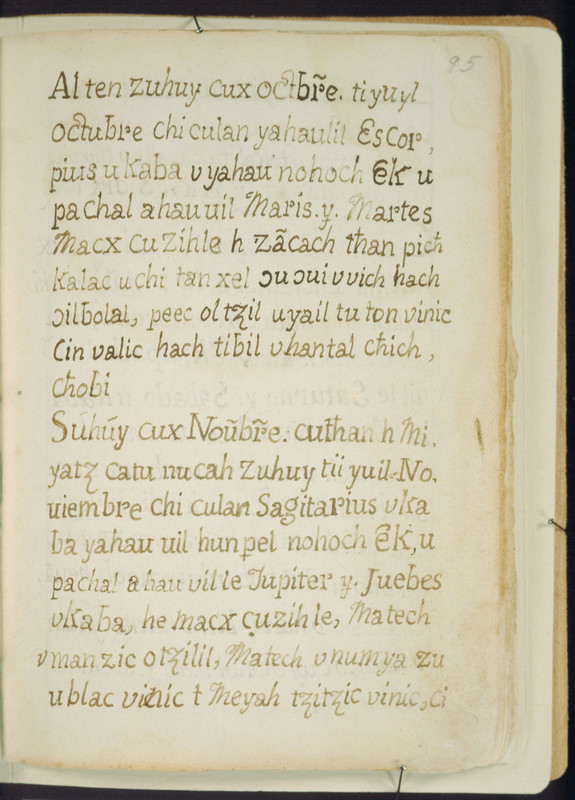 95
Al ten zuhuy cux octbr̃e. ti yuyl
octubre chi culan yahaulil Escor,
pius u kaba v yahau nohoch Ek u
pachal ahau uil Maris. y. Martes
Macx cu zihle h zãcach than pich
kalac u chi tan xel ɔu ɔui v vich hach
ɔilbolal, peec oltzil u yail tu ton vinic
Cin valic hach tibil v hantal chich,
chobi
Suhũy cux Noũbr̃e. cuthan h Mi.
yatz catu nucah zuhuy tii yuil. No.
uiembre chi culan Sagitarius v ka
ba yahau uil hunpel nohoch Ek, u
pachal ahau uil le Jupiter y. Juebes
v kaba, he macx cu zihle, Matech
v manzic otzilil, Matech v numya zu
u blac vinic t Meyah tzitzic vinic, ci